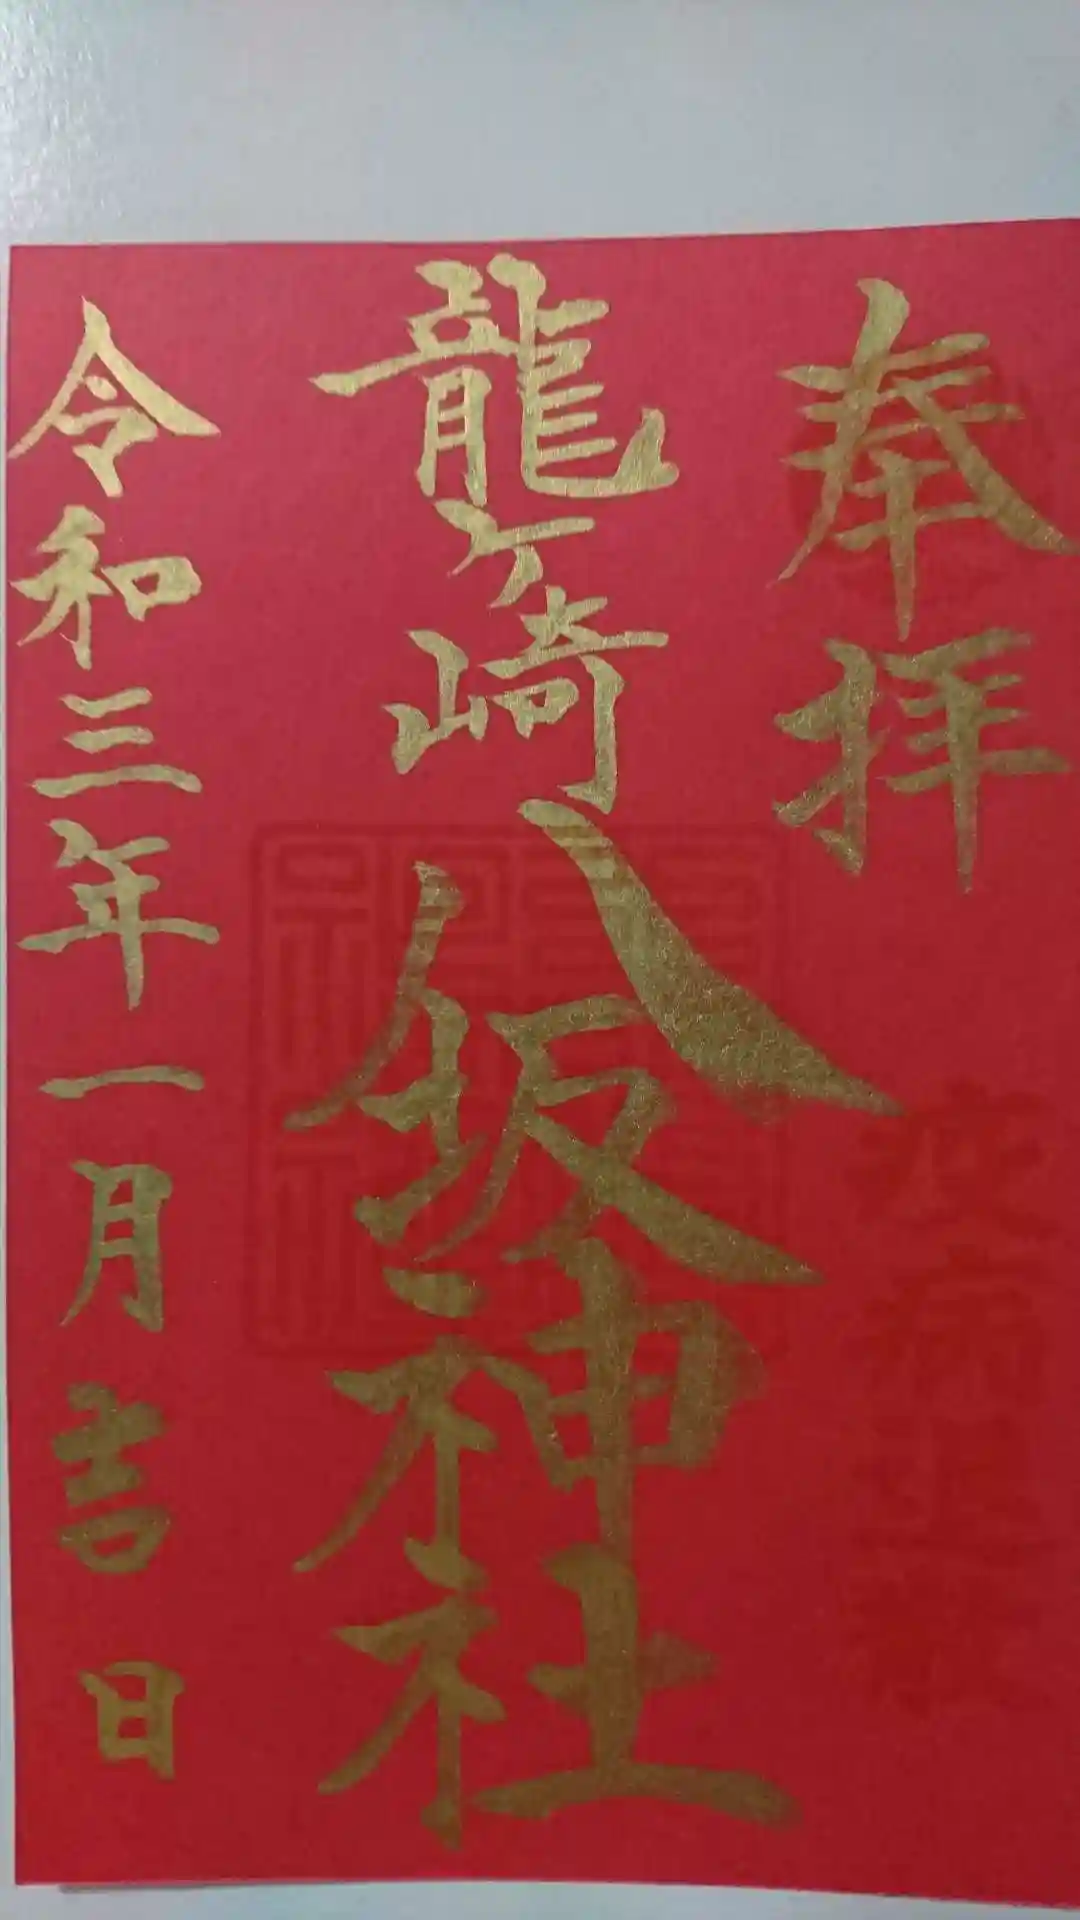 奉拝
龍ケ崎八坂神社
令和三年一月吉日